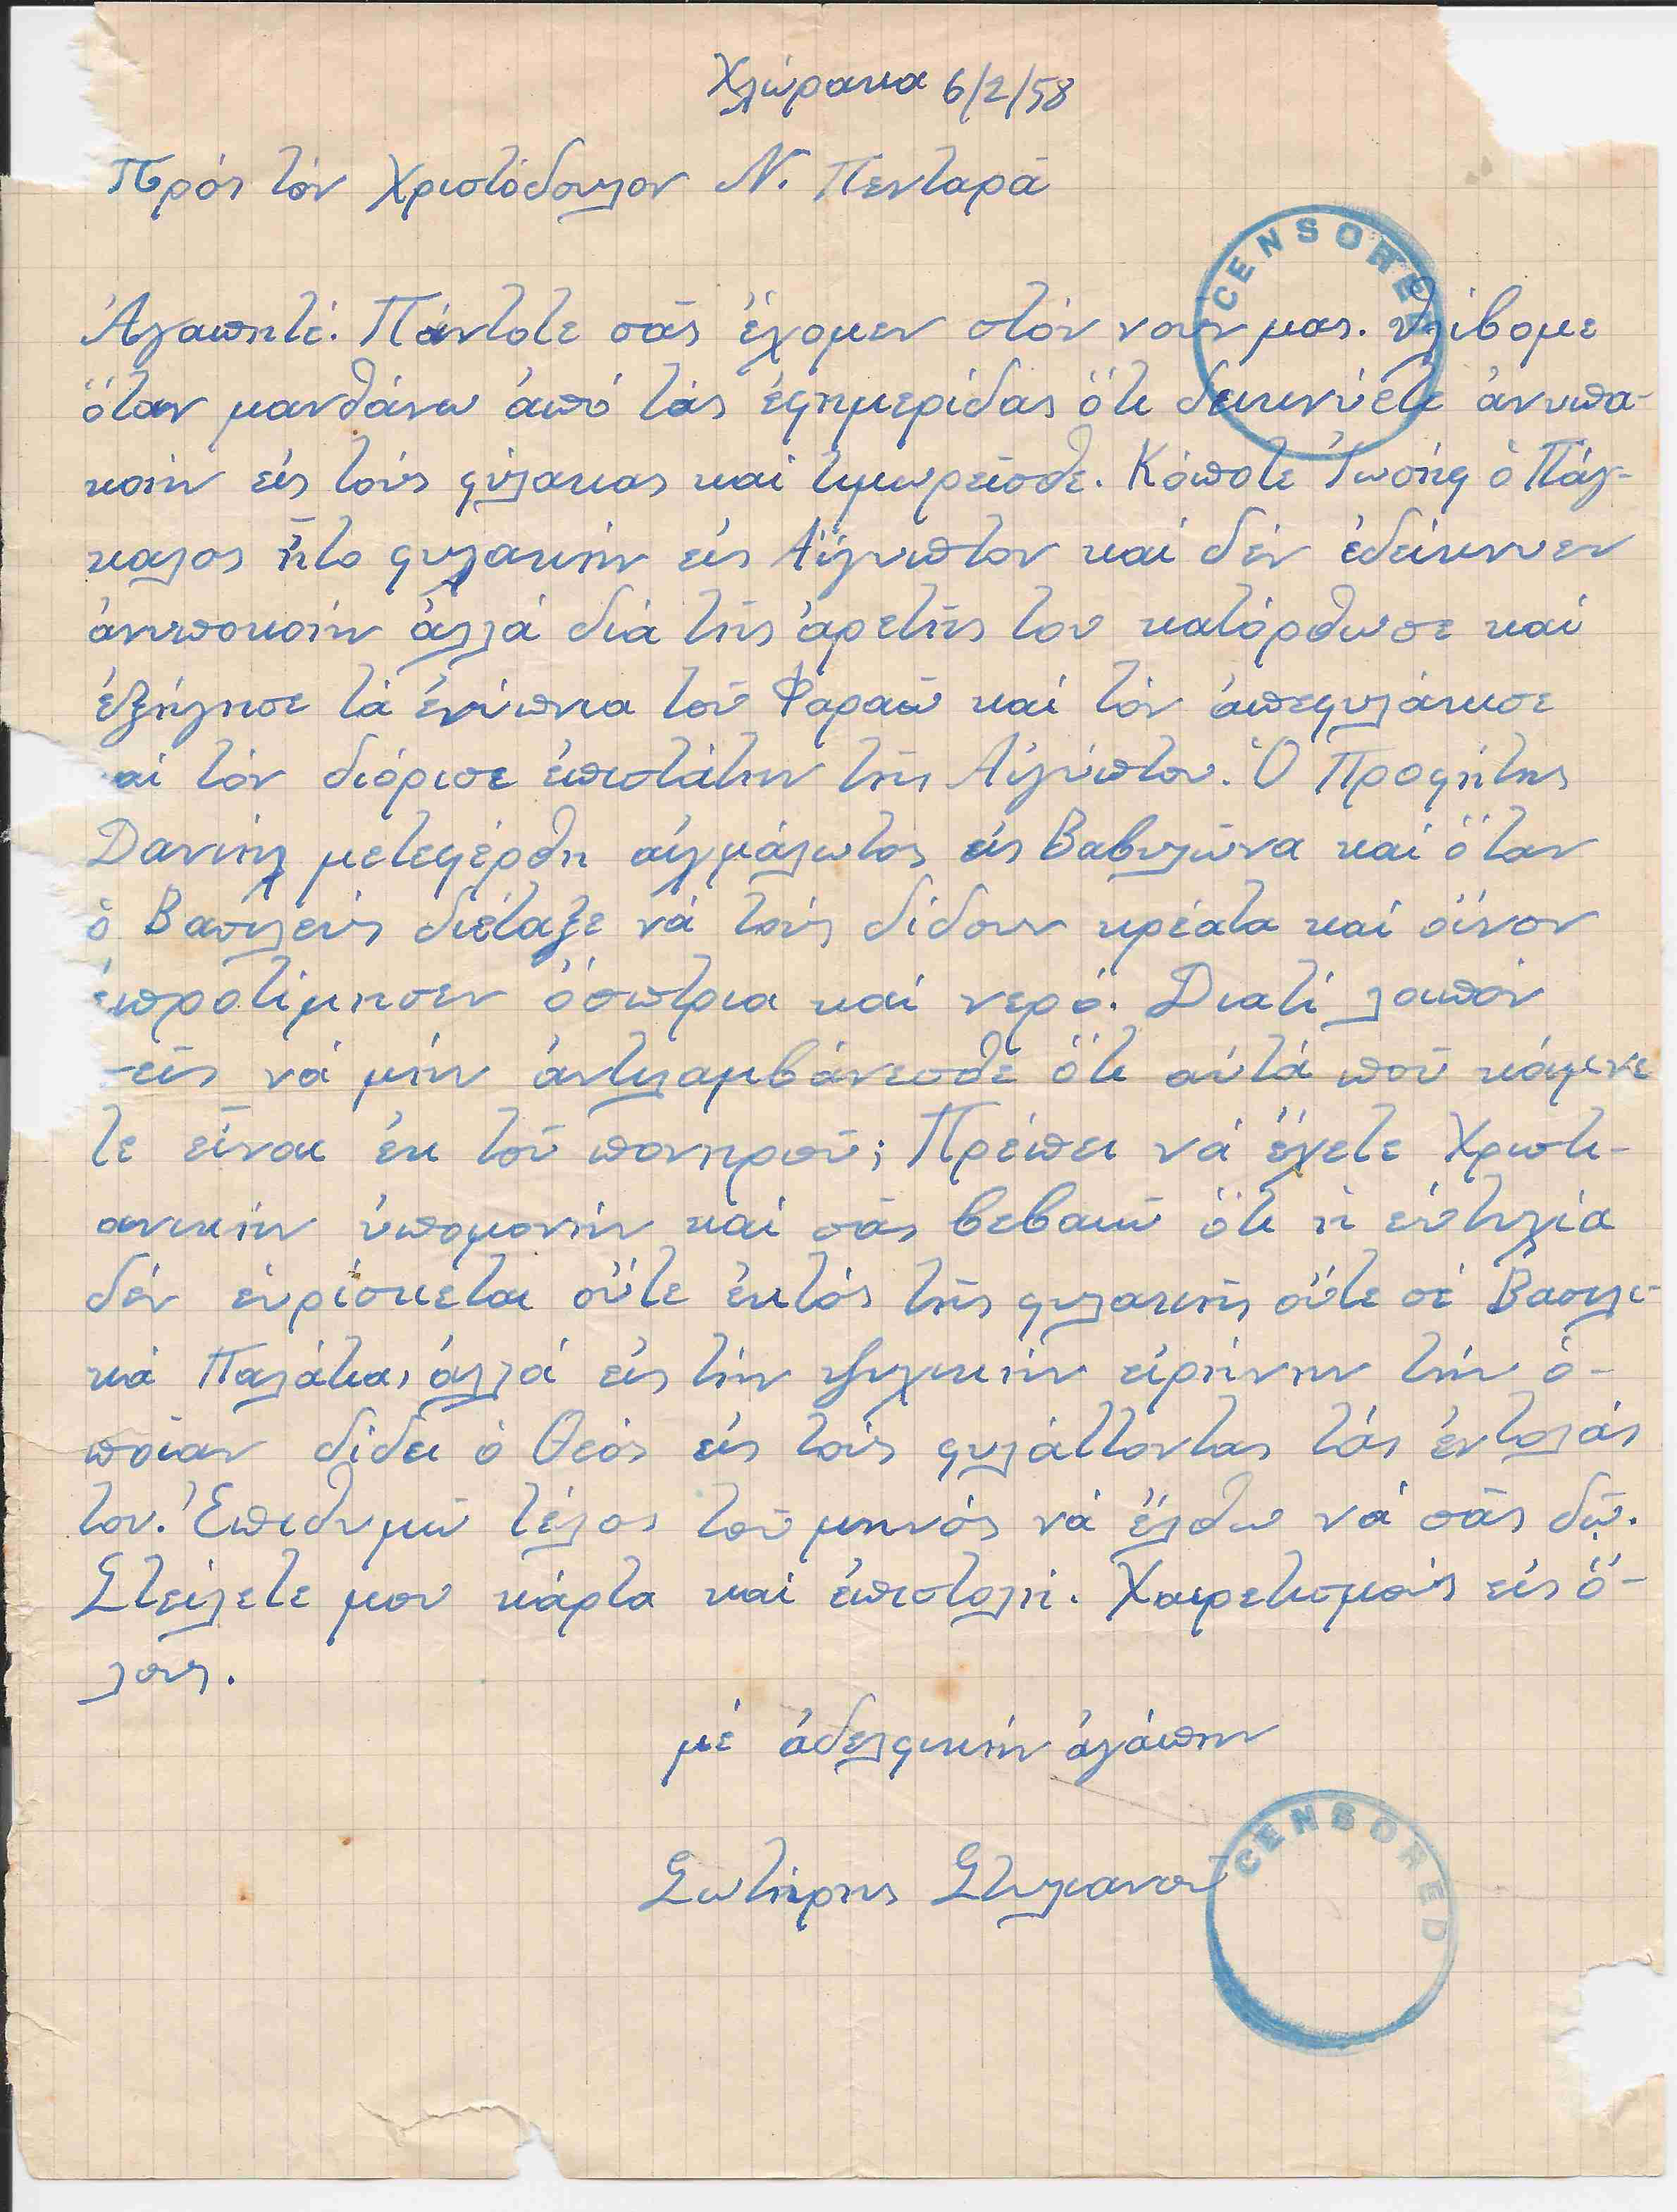 Χλώρακα 6/2/58
Πρός τόν Χριστόδουλον Ν. Πενταρᾶ
CENSORED
Ἀγαπητέ. Πάντοτε σᾶς ἔχομεν στόν νοῦν μας. Θλίβομε
ὅταν μανθάνω ἀπό τάς ἐφημερίδας ὅτι δεικνύετε ἀνυπα-
κοήν εἰς τούς φύλακας καί τιμωρεῖσθε. Κάποτε Ἰωσήφ ὁ Πάγ-
καλος ἦτο φυλακήν εἰς Αἴγυπτον καί δέν ἐδείκνυεν
ἀνυπακοήν ἀλλά διά τῆς ἀρετῆς του κατόρθωσε καί
ἐξήγησε τά ἐνύπνια τοῦ Φαραώ καί τόν ἀπεφυλάκισε
αί τόν διόρισε ἐπιστάτην τῆς Αἰγύπτου. Ὁ Προφήτης
Δανιήλ μετεφέρθη αἰχμάλωτος εἰς Βαβυλῶνα καί ὅταν
ὁ Βασιλεύς διέταξε νά τούς δίδουν κρέατα καί οἶνον
ἐπροτίμησεν ὄσπρια καί νερό. Διατί λοιπόν
-εῖς νά μήν ἀντιλαμβάνεσθε ὅτι αὐτά ποῦ κάμνε
τε εἶναι ἐκ τοῦ πονηροῦ; Πρέπει νά ἔχετε Χριστι-
ανικήν ὑπομονήν καί σᾶς βεβαιῶ ὅτι ἡ εὐτυχία
δέν εὑρίσκεται οὔτε ἐκτός τῆς φυλακῆς οὔτε σέ Βασιλι-
κά Παλάτια, ἀλλά εἰς τήν ψυχικήν εἰρήνην τήν ὁ-
ποίαν δίδει ὁ Θεός εἰς τούς φυλάττοντας τάς ἐντολάς
του. Ἐπιθυμῶ τέλος τοῦ μηνός νά ἔλθω νά σᾶς δῶ.
Στείλετε μου κάρτα καί ἐπιστολή. Χαιρετισμούς εἰς ὅ-
λους.
μέ ἀδελφικήν ἀγάπην
Σωτήρης Στυλιανοῦ
CENSORED